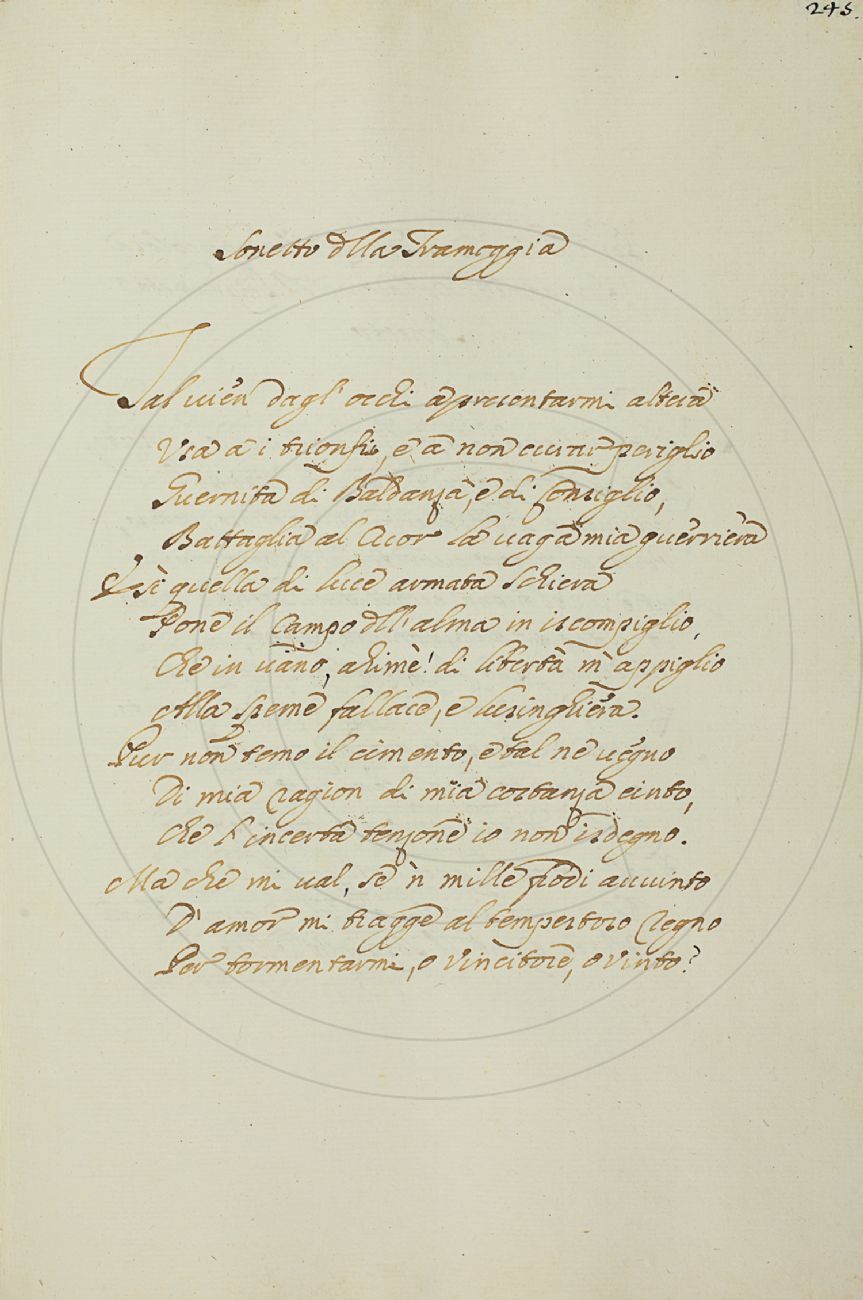 245.
Sonetto dlla Tramoggia
Tal vien dagl' occhi a presentarmi altera
Usa a i trionfi, e a non curar periglio
Guernita di Baldanza, e di Consiglio,
Battaglia al Cuor la vaga mia guerriera
E sì quella di luce armata schiera
Pone il Campo dll'alma in iscompiglio,
Che in vano, ahimè! di libertà m' appiglio
Alla speme fallace, e lusinghiera.
Pur non temo il cimento, e tal ne vegno
Di mia ragion di mia costanza cinto,
Che l' incerta tenzone io non isdegno.
Ma che mi val, se 'n mille frodi avvinto
D' amor mi tragge al tempestoso Regno
Per tormentarmi, o vincitore, o vinto?